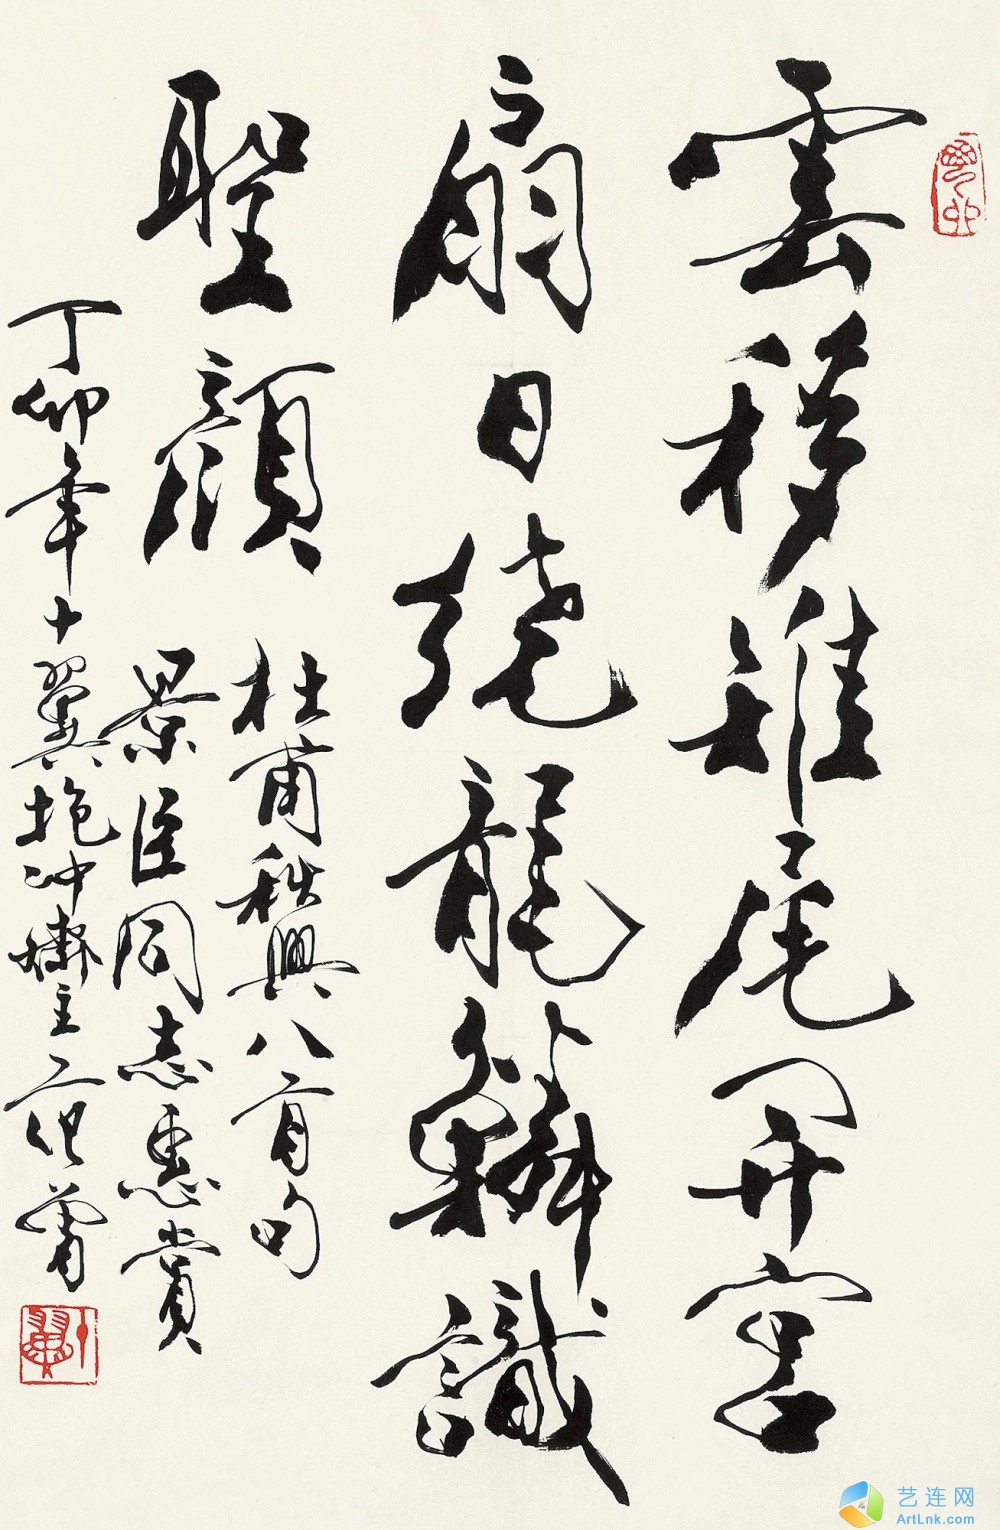 雲移雉尾開宮
扇日繞龍鱗識
聖顏
杜甫秋興八首句
景臣同志惠賞
丁卯年十翼抱冲齋主范曾
十翼
艺连网
ArtLnk.com